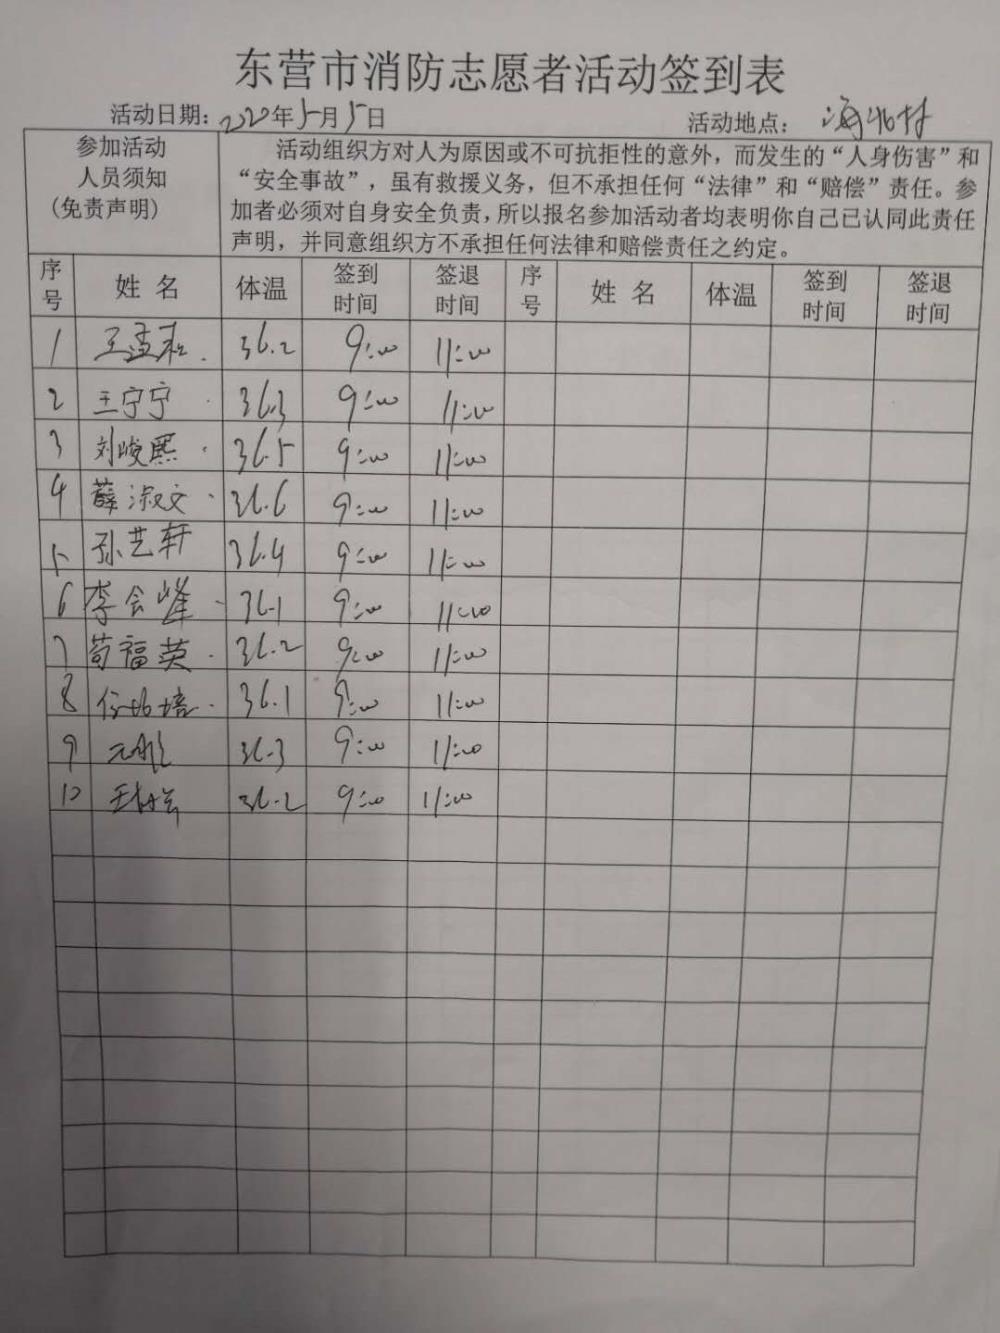 东营市消防志愿者活动签到表
活动日期：2020年5月5日 活动地点：海北村
参加活动
人员须知
(免责声明)
活动组织方对人为原因或不可抗拒性的意外，而发生的“人身伤害”和
“安全事故”，虽有救援义务，但不承担任何“法律”和“赔偿”责任。参
加者必须对自身安全负责，所以报名参加活动者均表明你自己已认同此责任
声明，并同意组织方不承担任何法律和赔偿责任之约定。
序号 姓名 体温 签到时间 签退时间 序号 姓名 体温 签到时间 签退时间
1 王孟 36.2 9:00 11:00
2 王宁宁 36.3 9:00 11:00
3 刘峻熙 36.5 9:00 11:00
4 薛淑文 36.6 9:00 11:00
5 孙艺轩 36.4 9:00 11:00
6 李会峰 36.1 9:00 11:00
7 苟福英 36.2 9:00 11:00
8 36.1 9:00 11:00
9 36.3 9:00 11:00
10 王 36.2 9:00 11:00